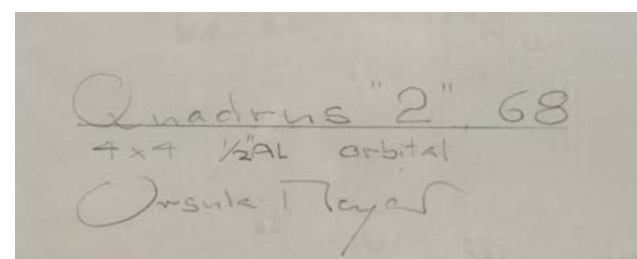 Quadrus "2", 68
4 x 4 1/2" AL orbital
Ursula Meyer